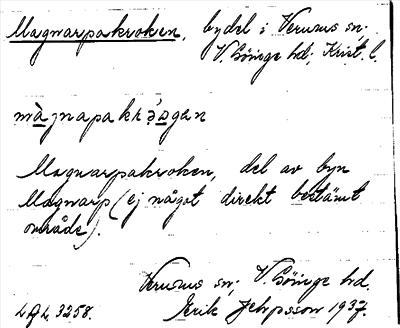 Magnarpakroken, bydel i Verums sn;
V. Göinge hd; Krist. l.
màgnapakrə̀ɔgan
Magnarpakroken, del av byn
Magnarp (ej något direkt bestämt
område).
Verums sn; V. Göinge hd.
L.A.L. 3258. Erik Jeppsson 1937.